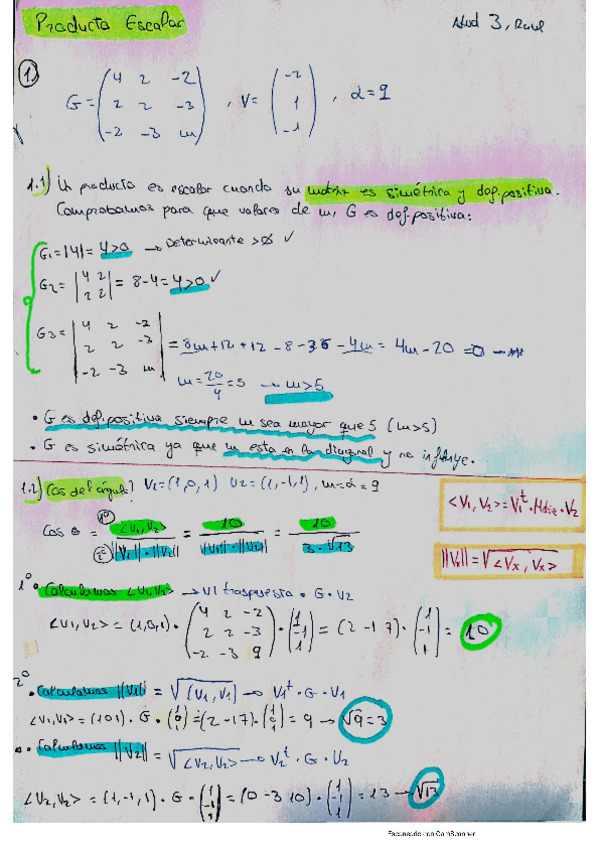 Producto Escalar
3, Raul
1.
G = (4 2 -2
2 2 -3
-2 -3 m) , V = (-2
1
-1) , α = 9
1.1) Un producto es escalar cuando su matriz es simétrica y def. positiva.
Comprobamos para que valores de m, G es def. positiva:
G1 = |4| = 4>0 → Determinante >0 ✓
G2 = |4 2
2 2| = 8-4 = 4>0 ✓
G3 = |4 2 -2
2 2 -3
-2 -3 m| = 8m+12+12-8-36-4m = 4m-20 =0 →
m = 20/4 = 5 → m>5
• G es def. positiva siempre m sea mayor que 5 (m>5)
• G es simétrica ya que m esta en la diagonal y no influye.
1.2) Cos del ángulo? V1=(1,0,1) V2=(1,-1,1), m=α=9
<V1, V2> = V1^t · Matriz · V2
Cos θ = 1º <V1, V2> / 2º ||V1||·||V2|| = 10 / ||V1||·||V2|| = 10 / 3·√13
||Vx|| = √<Vx, Vx>
1º • Calculamos <V1, V2> → V1 traspuesta · G · V2
<V1, V2> = (1,0,1) · (4 2 -2
2 2 -3
-2 -3 9) · (1
-1
1) = (2 -1 7) · (1
-1
1) = 10
2º
• Calculamos ||V1|| = √(V1, V1) → V1^t · G · V1
<V1, V1> = (1 0 1) · G · (1
0
1) = (2 -1 7) · (1
0
1) = 9 → √9 = 3
• Calculamos ||V2|| = √<V2, V2> → V2^t · G · V2
<V2, V2> = (1,-1,1) · G · (1
-1
1) = (0 -3 10) · (1
-1
1) = 13 → √13
Escaneado con CamScanner